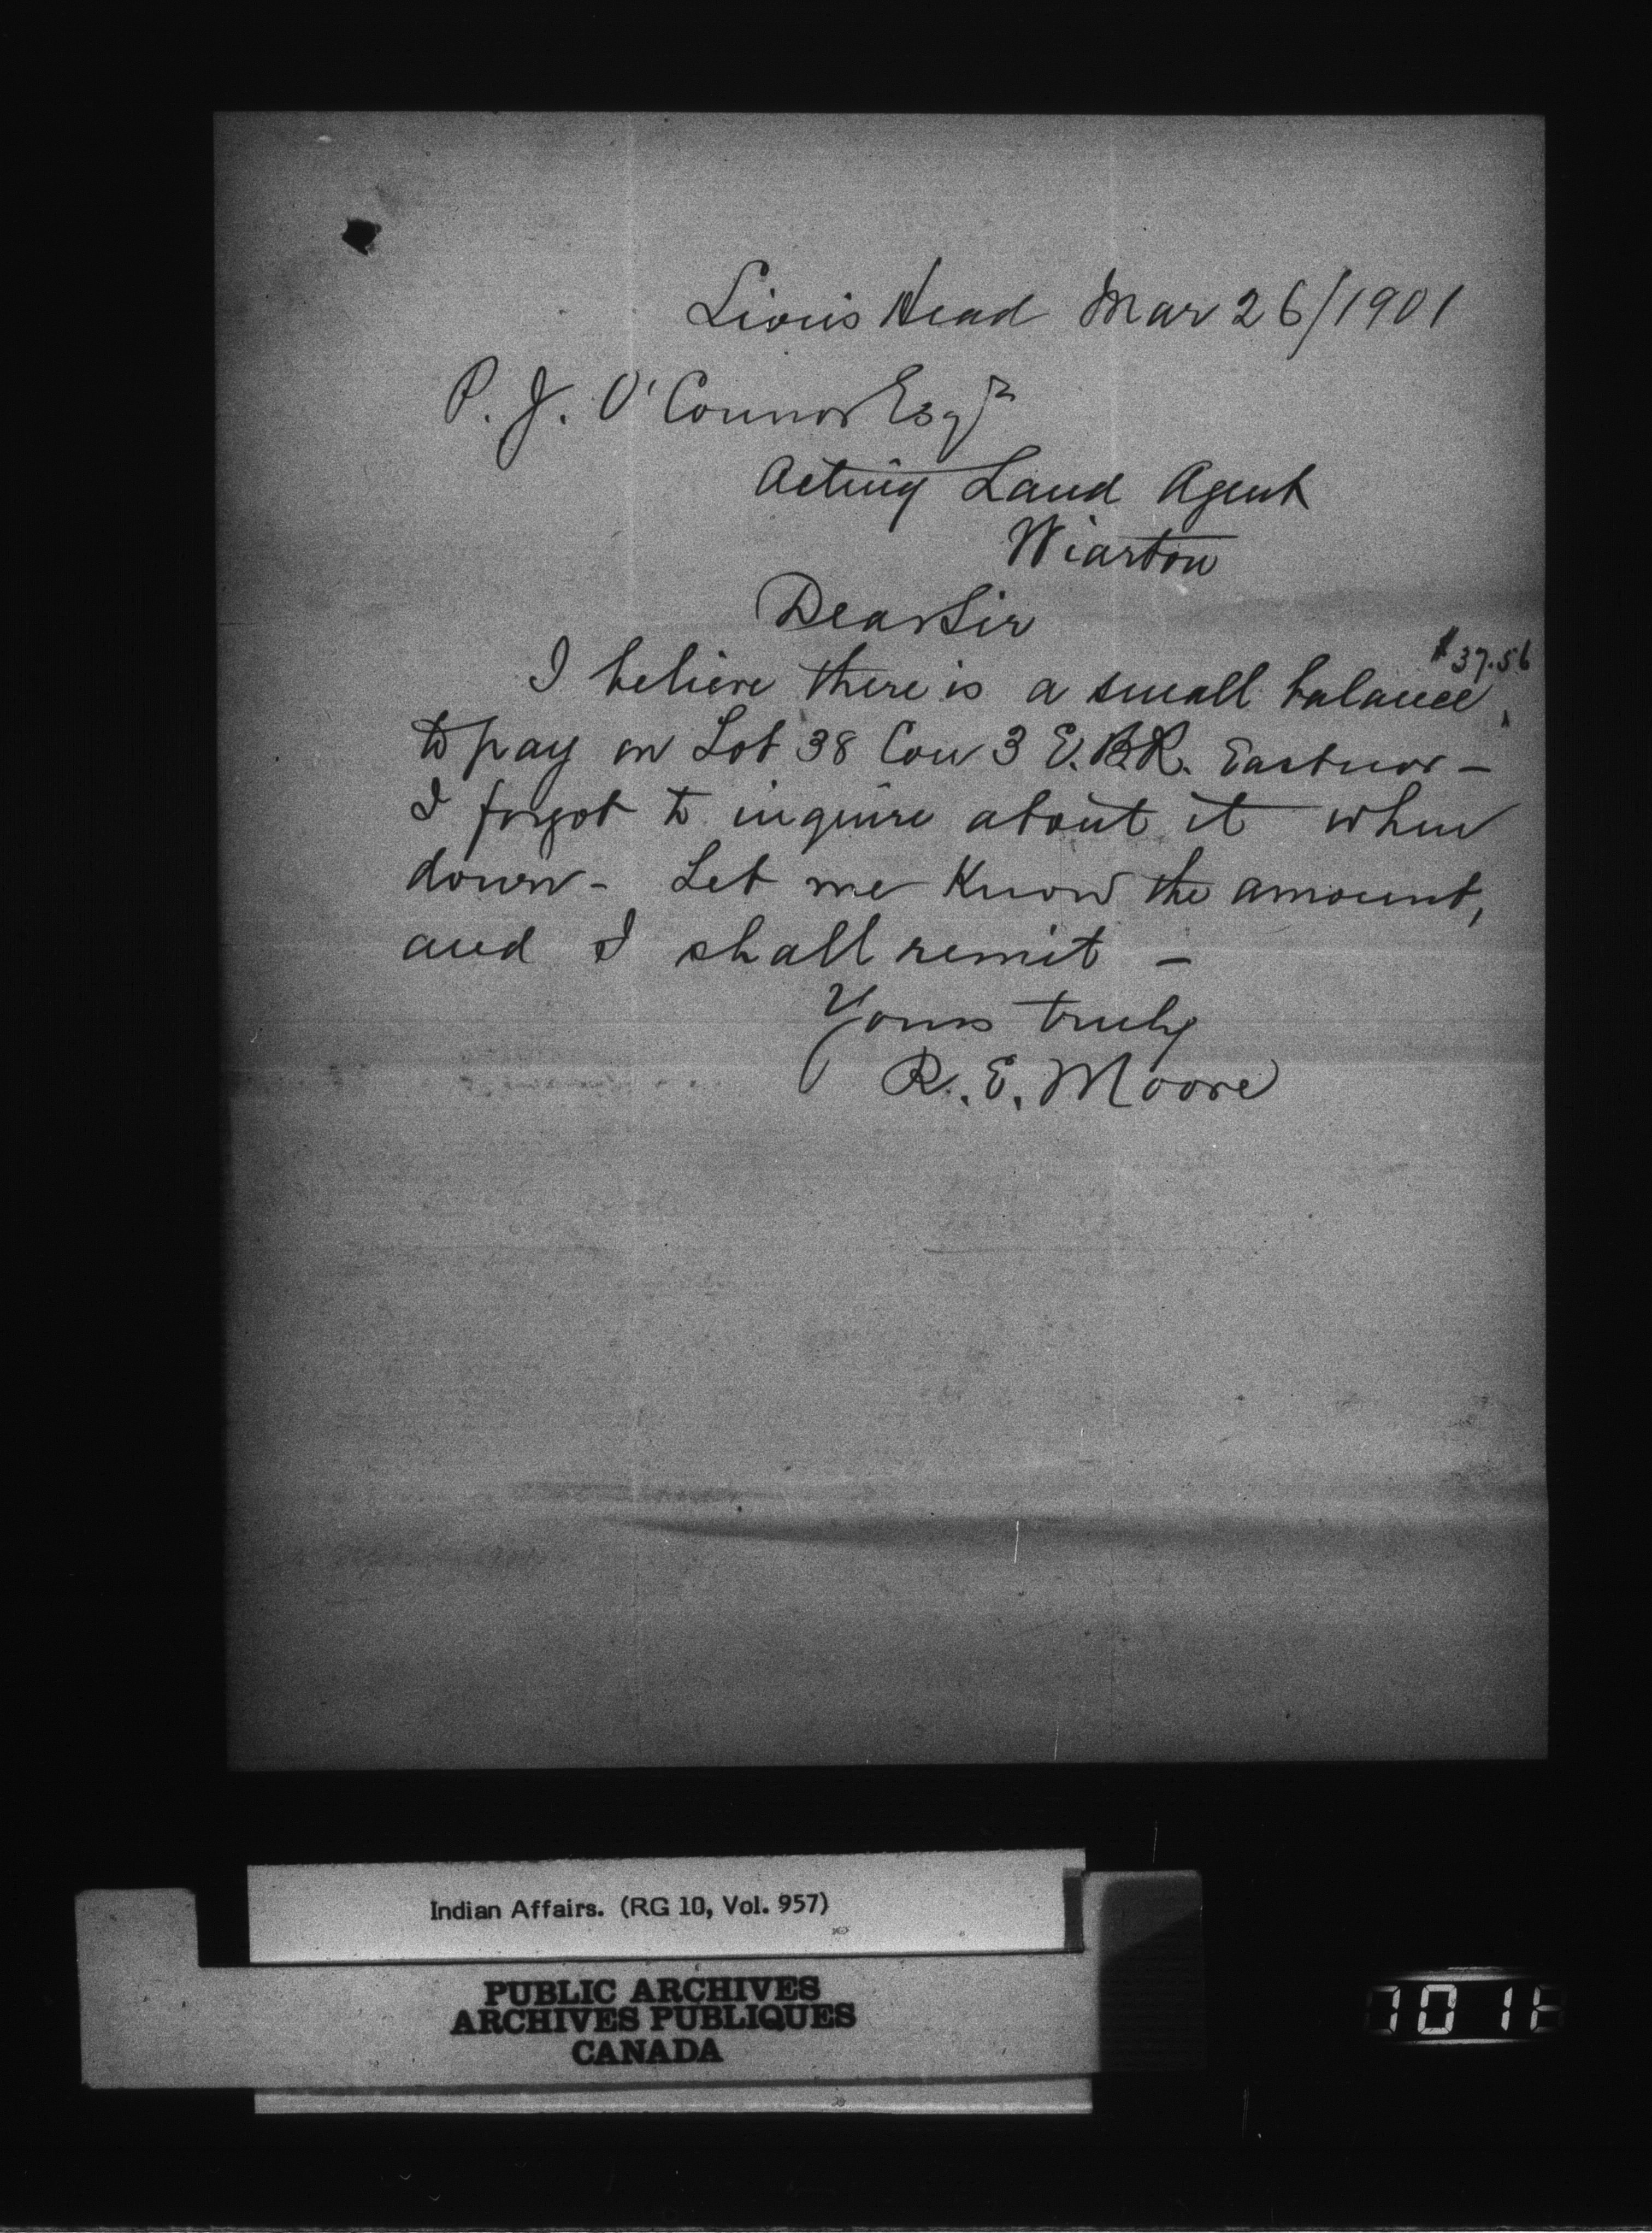 Lion's Head Mar 26/1901
P. J. O'Connor Esqr
Acting Land Agent
Wiarton
Dear Sir
$37.56
I believe there is a small balance
to pay on Lot 38 Con 3 E.B.R. Eastnor –
I forgot to inquire about it when
down – Let me Know the amount,
and I shall remit –
Yours truly
R. E. Moore
Indian Affairs. (RG 10, Vol. 957)
PUBLIC ARCHIVES
ARCHIVES PUBLIQUES
CANADA